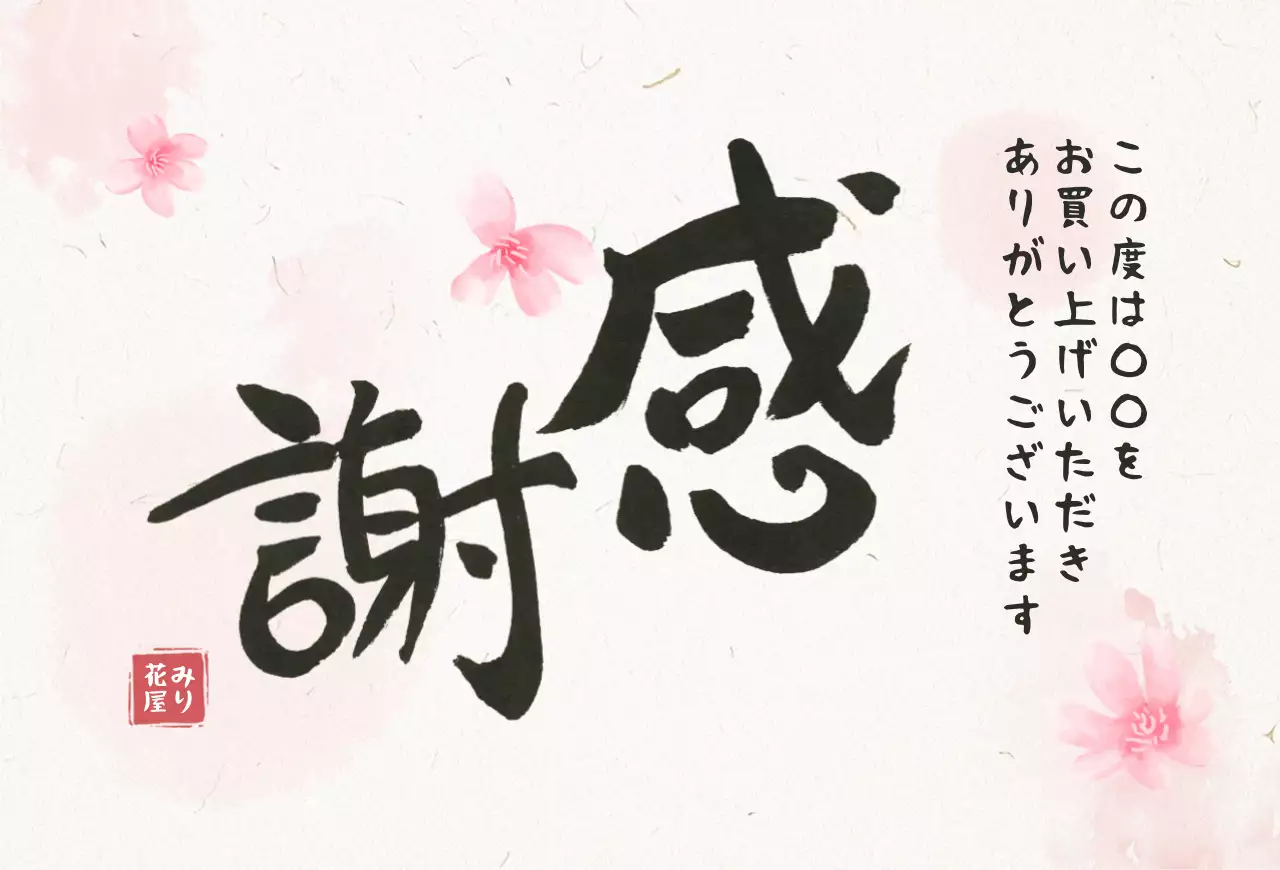 この度は〇〇を
お買い上げいただき
ありがとうございます
感謝
みり
花屋